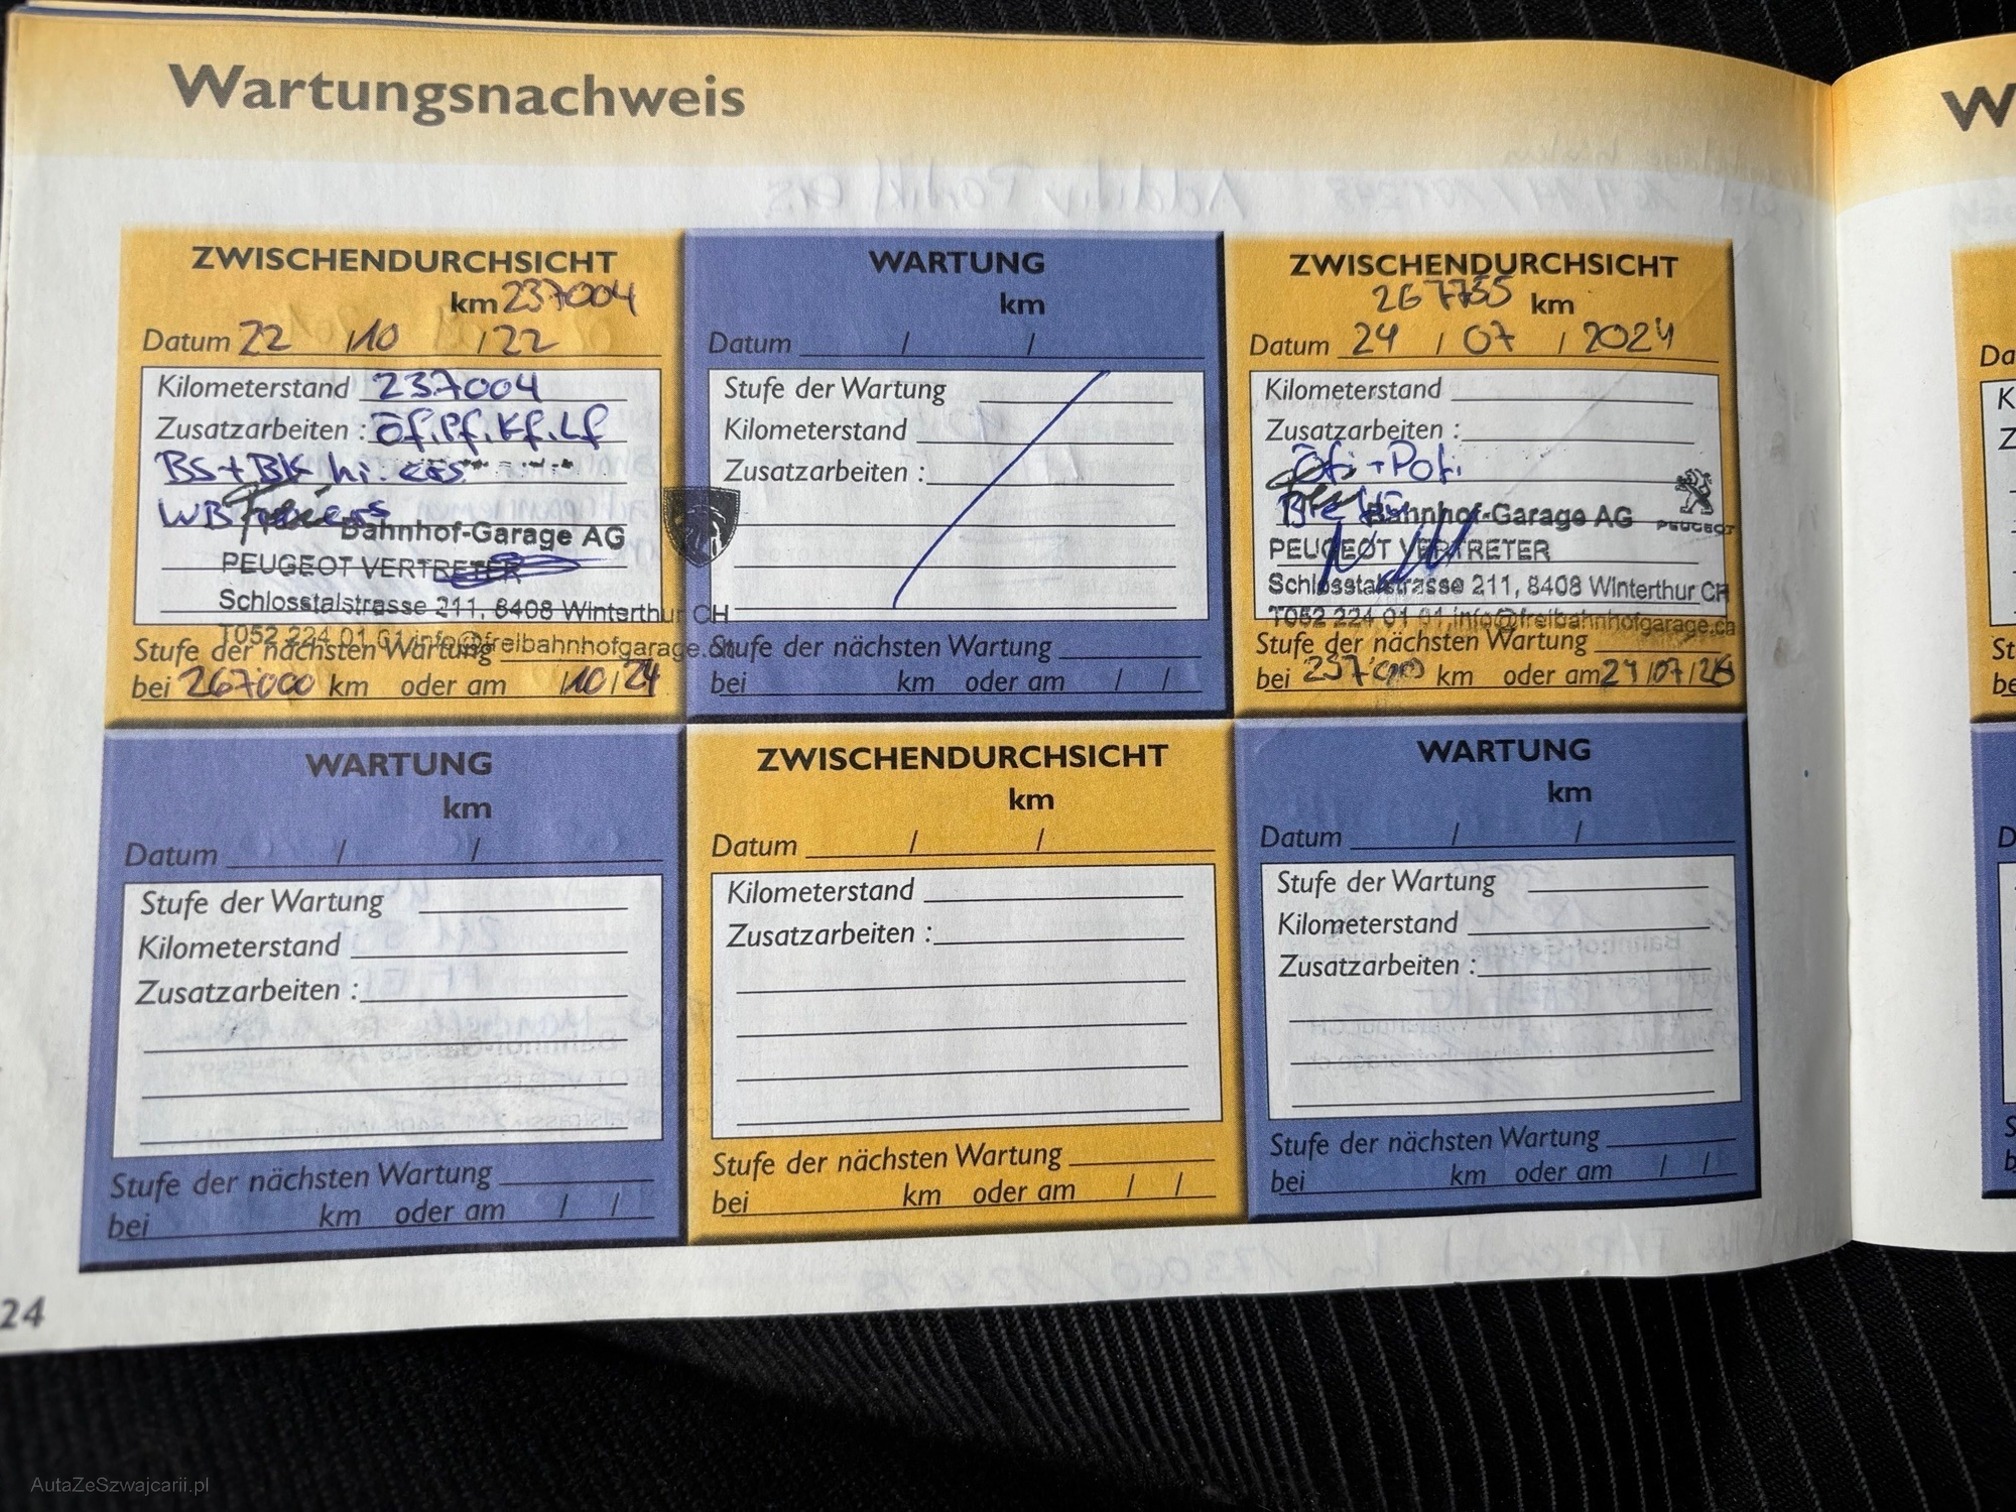 Wartungsnachweis
W
ZWISCHENDURCHSICHT
km 237004
Datum 22 / 10 / 22
Kilometerstand 237004
Zusatzarbeiten : Öf. Pf. Kf. Lf
BS + BK hi. ers
WB ers
Bahnhof-Garage AG
PEUGEOT VERTRETER
Schlosstalstrasse 211, 8408 Winterthur CH
T052 224 01 01 info@freibahnhofgarage.ch
Stufe der nächsten Wartung
bei 267000 km oder am /10/24
WARTUNG
km
Datum / /
Stufe der Wartung
Kilometerstand
Zusatzarbeiten :
Stufe der nächsten Wartung
bei km oder am / /
ZWISCHENDURCHSICHT
267755 km
Datum 24 / 07 / 2024
Kilometerstand
Zusatzarbeiten :
Öfi + Pofi
Bahnhof-Garage AG
PEUGEOT
PEUGEOT VERTRETER
Schlosstalstrasse 211, 8408 Winterthur CH
T052 224 01 01 info@freibahnhofgarage.ch
Stufe der nächsten Wartung
bei km oder am 24/07/26
WARTUNG
km
Datum / /
Stufe der Wartung
Kilometerstand
Zusatzarbeiten :
Stufe der nächsten Wartung
bei km oder am / /
ZWISCHENDURCHSICHT
km
Datum / /
Kilometerstand
Zusatzarbeiten :
Stufe der nächsten Wartung
bei km oder am / /
WARTUNG
km
Datum / /
Stufe der Wartung
Kilometerstand
Zusatzarbeiten :
Stufe der nächsten Wartung
bei km oder am / /
24
AutaZeSzwajcarii.pl